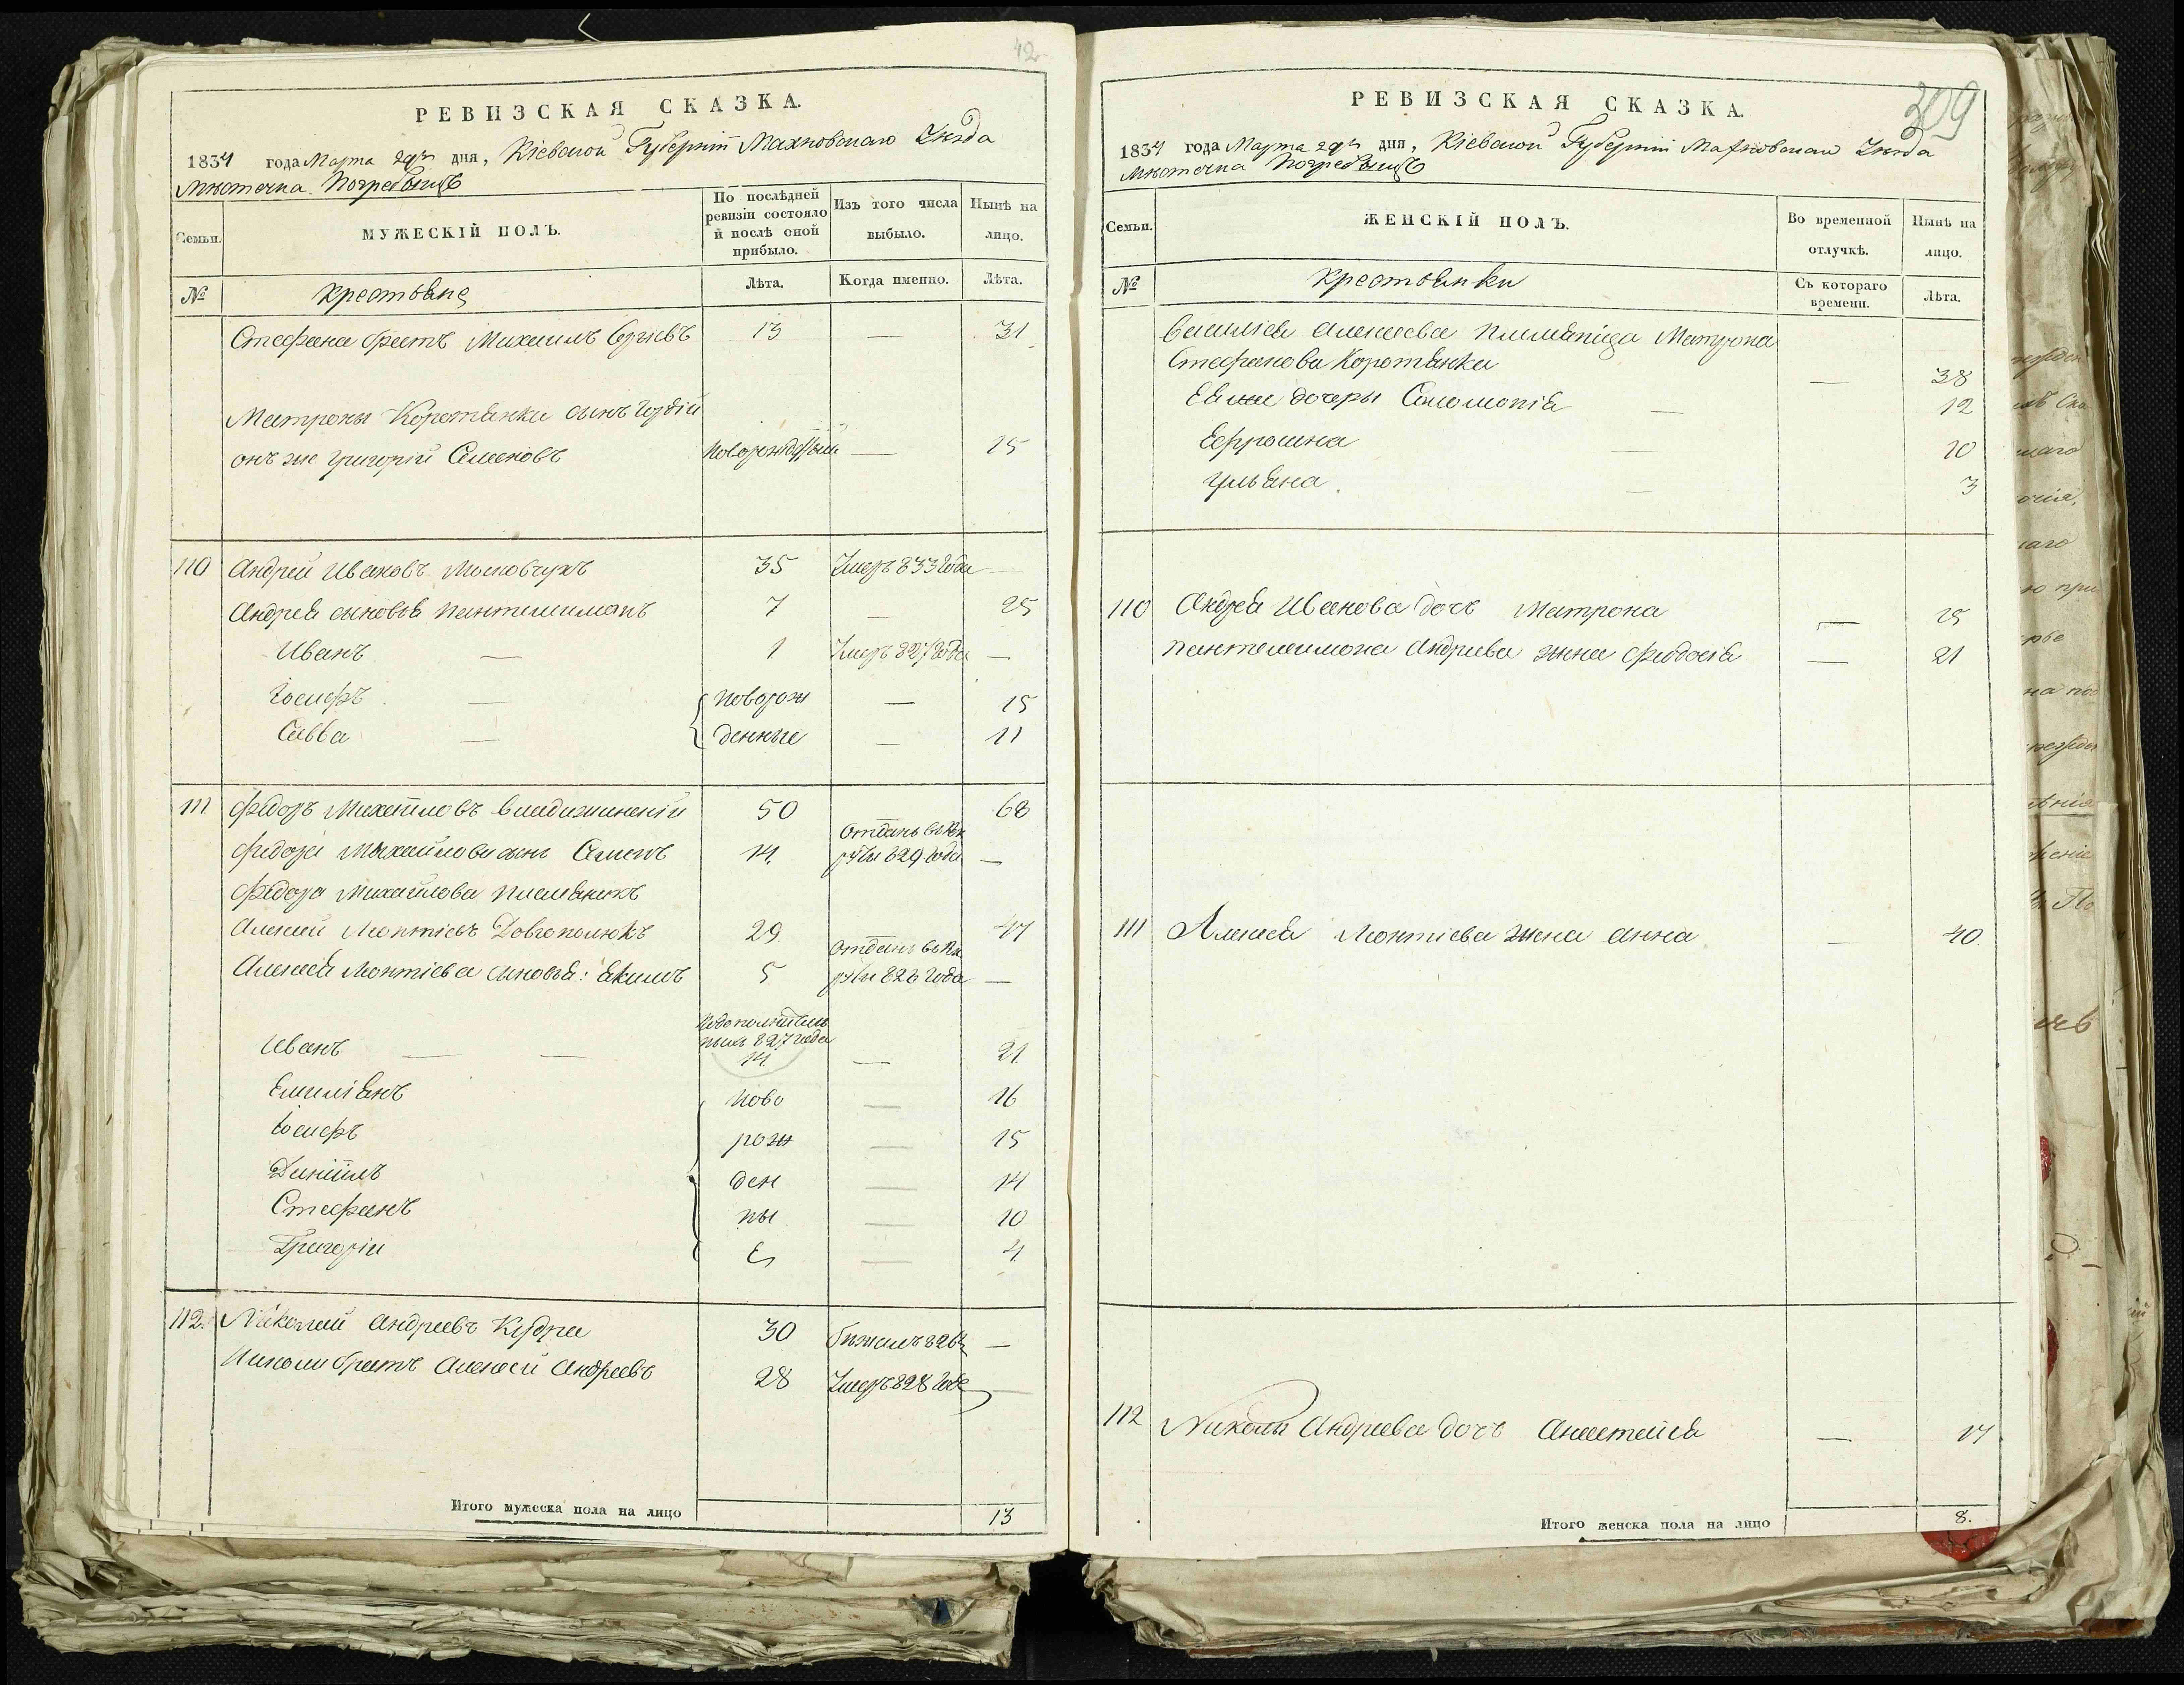 42
РЕВИЗСКАЯ СКАЗКА.
1834 года Марта 29го дня, Кіевской Губерніи Махновскаго Уезда
Мѣстечка Погребищъ
Семьи.
МУЖЕСКІЙ ПОЛЪ.
По послѣдней ревизіи состояло и послѣ оной прибыло.
Изъ того числа выбыло.
Нынѣ на лицо.
№
крестьяне
Лѣта.
Когда именно.
Лѣта.
Стефана братъ Михаилъ 13 — 31
Матроны Коротянки сынъ
онъ же Григорій Семеновъ Новорожденный — 15
110 Андрей Ивановъ Московчукъ 35 Умеръ 833 Года —
Андрея сыновья Пантелимонъ 7 — 25
Иванъ — 1 Умеръ 827 Года —
Іосифъ — новорож — 15
Савва — денные — 11
111 Федоръ Михайловъ 50 68
Федора Михайлова сынъ Семенъ 14 Отданъ въ Рекруты 829 Года —
Федора Михайлова племянникъ
Алексѣй Леонтіевъ Довгополюкъ 29 47
Алексѣя Леонтіева сыновья: Якимъ 5 Отданъ въ Рекруты 826 Года —
Иванъ — — 827 года 14 — 21
Емиліянъ ново — 16
Іосифъ рож — 15
Даніилъ ден — 14
Стефанъ ны — 10
Григорій е — 4
112. Николай Андреевъ Кудра 30 бежалъ 826 —
Николы братъ Алексѣй Андреевъ 28 Умеръ 828 Года —
Итого мужеска пола на лицо 13
309
РЕВИЗСКАЯ СКАЗКА.
1834 года Марта 29го дня, Кіевской Губерніи Махновскаго Уезда
Мѣстечка Погребищъ
Семьи.
ЖЕНСКІЙ ПОЛЪ.
Во временной отлучкѣ.
Нынѣ на лицо.
№
крестьянки
Съ котораго времени.
Лѣта.
Василія Алексѣева племяница Матрона
Стефанова Коротянка — 38
Ея дочеры Соломонія — 12
Ефросина — 10
Ульяна — 3
110 Андрея Иванова дочь Матрона — 15
Пантелимона Андреева жена Феодосія — 21
111 Алексѣя Леонтіева жена Анна — 40.
112 Николы Андреева дочь Анастасія — 17
Итого женска пола на лицо 8.